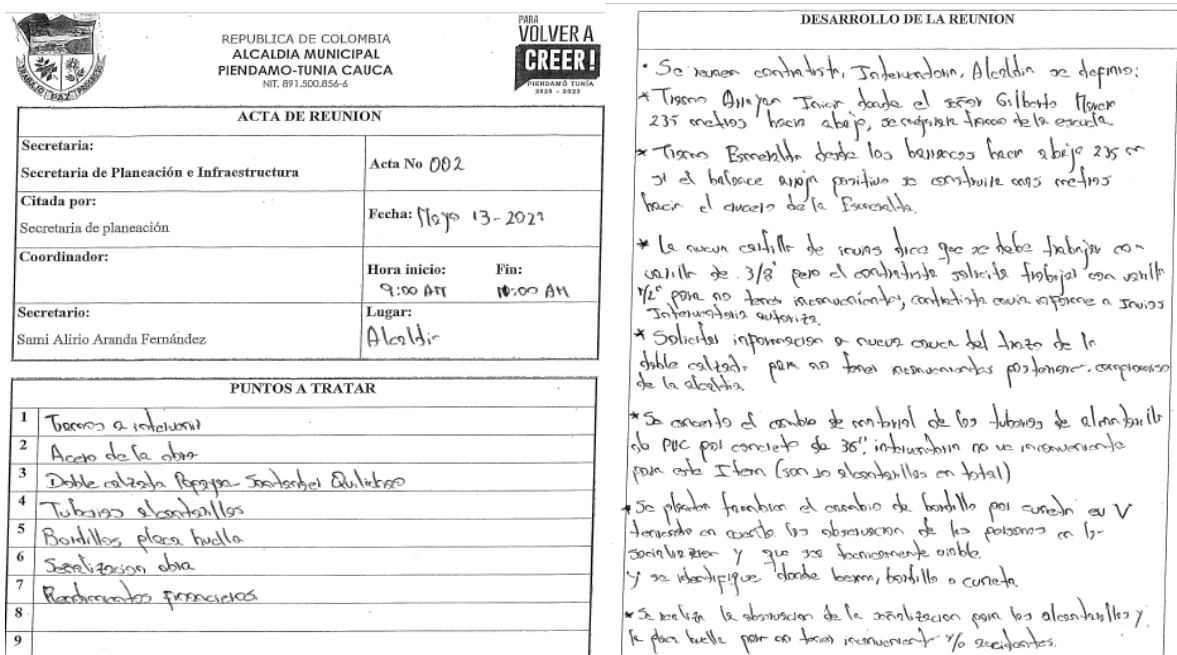 REPUBLICA DE COLOMBIA
ALCALDIA MUNICIPAL
PIENDAMO-TUNIA CAUCA
NIT. 891.500.856-6
TRABAJO PAZ PROGRESO
PARA
VOLVER A
CREER!
PIENDAMÓ TUNÍA
2020 - 2023
ACTA DE REUNION
Secretaria:
Secretaria de Planeación e Infraestructura
Acta No 002
Citada por:
Secretaria de planeación
Fecha: Mayo 13-2021
Coordinador:
Hora inicio: Fin:
9:00 AM 10:00 AM
Secretario:
Sami Alirio Aranda Fernández
Lugar:
Alcaldia
PUNTOS A TRATAR
1 Tramos a intervenir
2 Acero de la obra
3 Doble calzada Popayan-Santander Quilichao
4 Tuberias alcantarillas
5 Bordillos placa huella
6 Señalizacion obra
7 Rendimientos financieros.
8
9
DESARROLLO DE LA REUNION
• Se reunen contratista, Interventoria, Alcaldia se definio:
* Tramo Arrayan Iniciar donde el señor Gilberto
235 metros hacia abajo, se mejorara tramo de la escuela.
* Tramo Esmeralda desde los barrancos hacia abajo 235 m
si el balance arroja positivo se construira mas metros
hacia el cruce de la Esmeralda.
* La nueva cartilla de invias dice que se debe trabajar con
varilla de 3/8" pero el contratista solicita trabajar con varilla
1/2" para no tener inconvenientes, contratista envia informe a Invias
Interventoria autoriza.
* Solicitar informacion a nueva cauca del trazo de la
doble calzada para no tener inconvenientes posteriores. compromiso
de la alcaldia.
* Se concerto el cambio de material de las tuberias de alcantarilla
de PVC por concreto de 36", interventoria no ve inconveniente
para este Item (son 10 alcantarillas en total)
* Se plantea tambien el cambio de bordillo por cuneta en V
teniendo en cuenta las observacion de las personas en la
socializacion y que sea tecnicamente viable.
y se identifique donde berma, bordillo o cuneta.
* Se realiza la observacion de la señalizacion para las alcantarillas y
la placa huella para no tener inconveniente y/o accidentes.